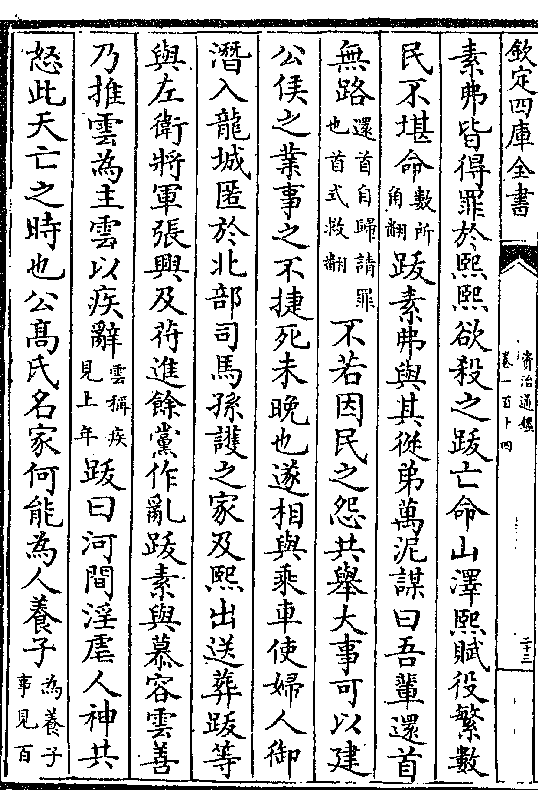 欽定四庫全書
資治通鑑
卷一百十四
二十三
素弗皆得罪於熙熙欲殺之跋亡命山澤熙賦役繁數
民不堪命數所角翻跋素弗與其從弟萬泥謀曰吾輩還首
無路還首自歸請罪也首式救翻不若因民之怨共舉大事可以建
公侯之業事之不捷死未晚也遂相與乘車使婦人御
潛入龍城匿於北部司馬孫護之家及熙出送葬跋等
與左衛將軍張興及苻進餘黨作亂跋素與慕容雲善
乃推雲為主雲以疾辭雲稱疾見上年跋曰河間淫虐人神共
怒此天亡之時也公髙氏名家何能為人養子為養子事見百